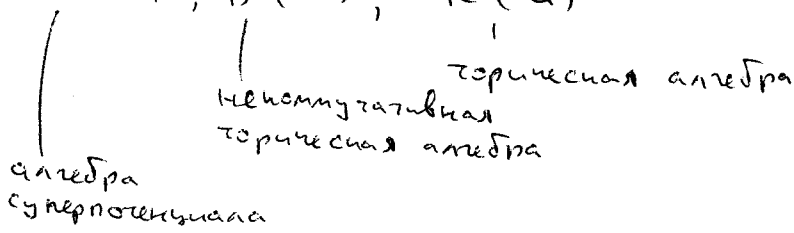 торическая алгебра
некоммутативная
торическая алгебра
алгебра
суперпотенциала